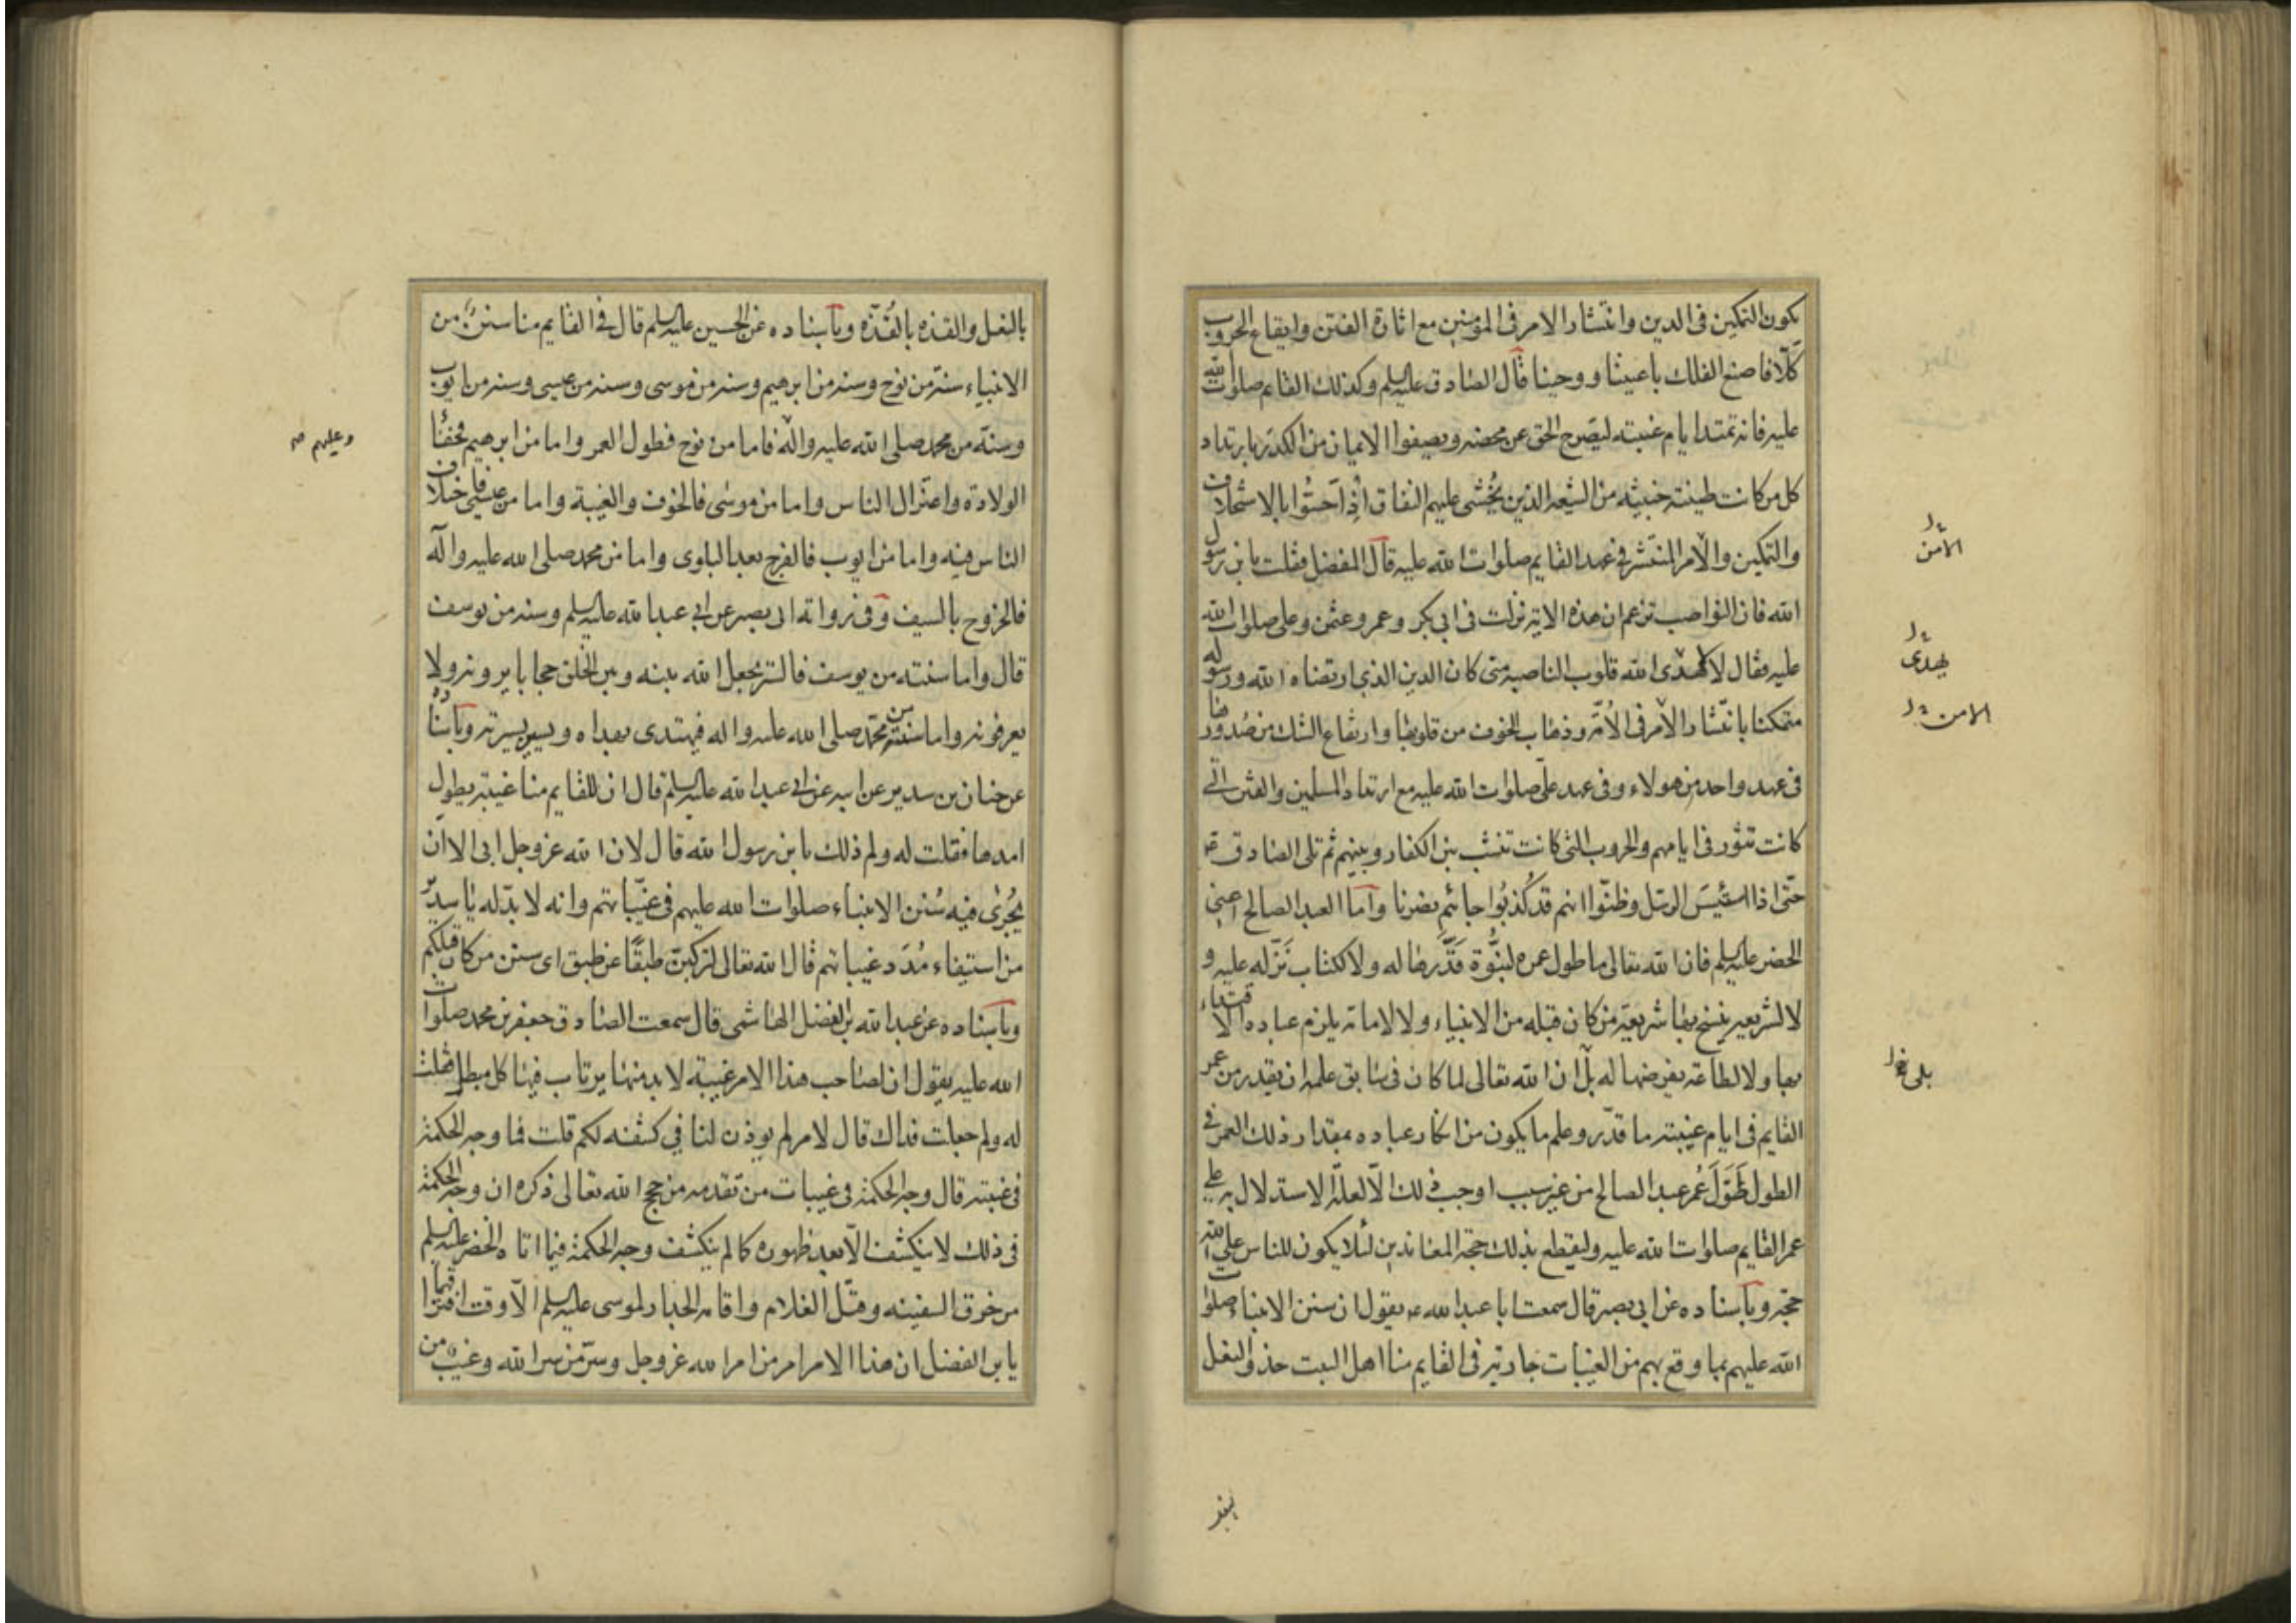 يكون التمكين فى الدين وانتشار الامر فى المؤمنين مع اثارة الفتن وايقاع الحروب
كلّا فاصنع الفلك باعيننا ووحينا قال الصادق عليه السلم وكذلك القايم صلوات الله
عليه فانه تمتد ايام غيبته ليصرح الحق عن محضه ويصفوا الايمان من الكدر بارتداد
كل من كانت طينته خبيثه من الشيعه الذين يُخشى عليهم النفاق اذا احسّوا بالاستخلاف
والتمكين والامر المنتشر فى عهد القايم صلوات الله عليه قال المفضل فقلت يا بن رسول
الله فان النواصب تزعم ان هذه الاية نزلت فى ابى بكر وعمر وعثمن وعلى صلوات الله
عليه فقال لا يهدى الله قلوب الناصبه متى كان الدين الذى ارتضاه الله ورسوله
متمكنا بانتشار الامر فى الامّه وذهاب الخوف من قلوبها وارتفاع الشك من صدورها
فى عهد واحد من هولاء وفى عهد علىّ صلوات الله عليه مع ارتداد المسلمين والفتن الّتى
كانت تثور فى ايامهم والحروب التى كانت تنشب بين الكفار وبينهم ثم تلى الصادق ع
حتّى اذا استيئس الرسل وظنّوا انهم قد كُذبُوا جائهم نصرنا وامّا العبد الصالح اعنى
الخضر عليه السلم فان الله تعالى ما طول عمره لنبُوَّة قَدَّرها له ولا لكتاب نَزّله عليه و
لا لشريعه ينسخ بها شريعة من كان قبله من الانبياء ولا لامامة يلزم عباده الاقتداء
بها ولا لطاعة يفرضها له بل ان الله تعالى لما كان فى سابق علمه ان يقدر من عمر
القايم فى ايام غيبته ما قدّر وعلم ما يكون من انكار عباده بمقدار ذلك العمر فى
الطول طَوَّلَ عُمر عبد الصالح من غير سبب اوجب ذلك الّا لعلّة الاستدلال به على
عمر القايم صلوات الله عليه وليقطع بذلك حجة المعاندين لئلا يكون للناس على الله
حجة وباسناده عن ابى بصير قال سمعت ابا عبد الله ع يقول ان سنن الانبياء صلوات
الله عليهم بما وقع بهم من الغيبات جاريه فى القايم منا اهل البيت حذو النعل
الامن
يهدى
الامن
بلى
بالنعل والقذه بالقُذّه وباسناده عن الحسين عليه السلم قال فى القايم منا سنن من
الانبياء سنة من نوح وسنه من ابرهيم وسنه من موسى وسنه من عيسى وسنه من ايوب
وسنّه من محمد صلى الله عليه واله فاما من نوح فطول العمر واما من ابرهيم فخفاء
الولادة واعتزال الناس واما من موسى فالخوف والغيبة واما من عيسى فاختلاف
الناس فيه واما من ايوب فالفرج بعد البلوى واما من محمد صلى الله عليه واله
فالخروج بالسيف وفى رواية ابى بصير عن ابى عبد الله عليه السلم وسنه من يوسف
قال واما سنته من يوسف فالستر يجعل الله بينه وبين الخلق حجابا يرونه ولا
يعرفونه واما سنته من محمّد صلى الله عليه واله فيهتدى بهداه ويسير بسيرته وباسناده
عن حنان بن سدير عن ابيه عن ابى عبد الله عليه السلم قال ان للقايم منا غيبة يطول
امدها فقلت له ولم ذلك يا بن رسول الله قال لان الله عز وجل ابى الا ان
يجُرى فيه سُنن الانبياء صلوات الله عليهم فى غيباتهم وانه لا بدّ له يا سدير
من استيفاء مُدَد غيباتهم قال الله تعالى لتركبن طبقًا عن طبق اى سنن من كان قبلكم
وباسناده عن عبد الله بن الفضل الهاشمى قال سمعت الصادق جعفر بن محمد صلوات
الله عليه يقول ان لصاحب هذا الامر غيبة لا بد منها يرتاب فيها كل مبطل فقلت
له ولم جعلت فداك قال لامر لم يوذن لنا فى كشفه لكم قلت فما وجه الحكمة
فى غيبته قال وجه الحكمة فى غيبات من تقدمه من حجج الله تعالى ذكره ان وجه الحكمة
فى ذلك لا ينكشف الّا بعد ظهوره كما لم ينكشف وجه الحكمة فيما اتاه الخضر عليه السلم
من خرق السفينه وقتل الغلام واقامة الجدار لموسى عليه السلم الّا وقت افتراقهما
يا بن الفضل ان هذا الامر امر من امر الله عز وجل وسرّ من سر الله وغيب من
وعليهم